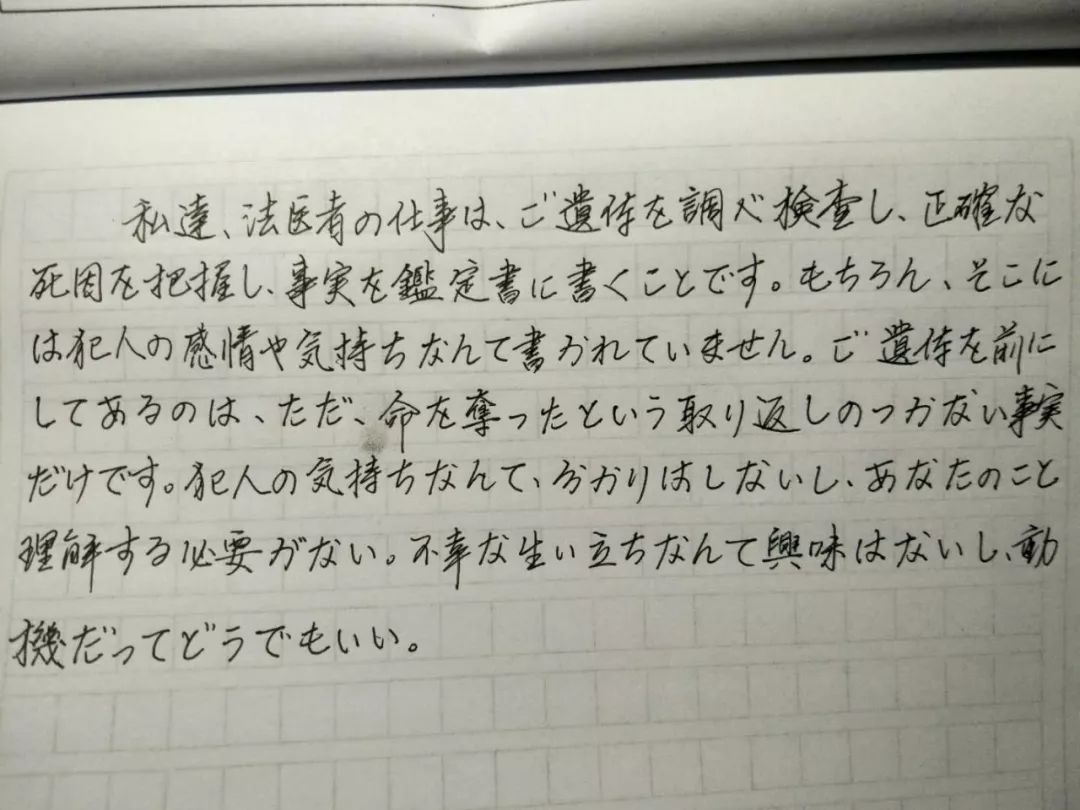 私達、法医者の仕事は、ご遺体を調べ検査し、正確な
死因を把握し、事実を鑑定書に書くことです。もちろん、そこに
は犯人の感情や気持ちなんて書かれていません。ご遺体を前に
してあるのは、ただ、命を奪ったという取り返しのつかない事実
だけです。犯人の気持ちなんて、分かりはしないし、あなたのこと
理解する必要がない。不幸な生い立ちなんて興味はないし、動
機だってどうでもいい。